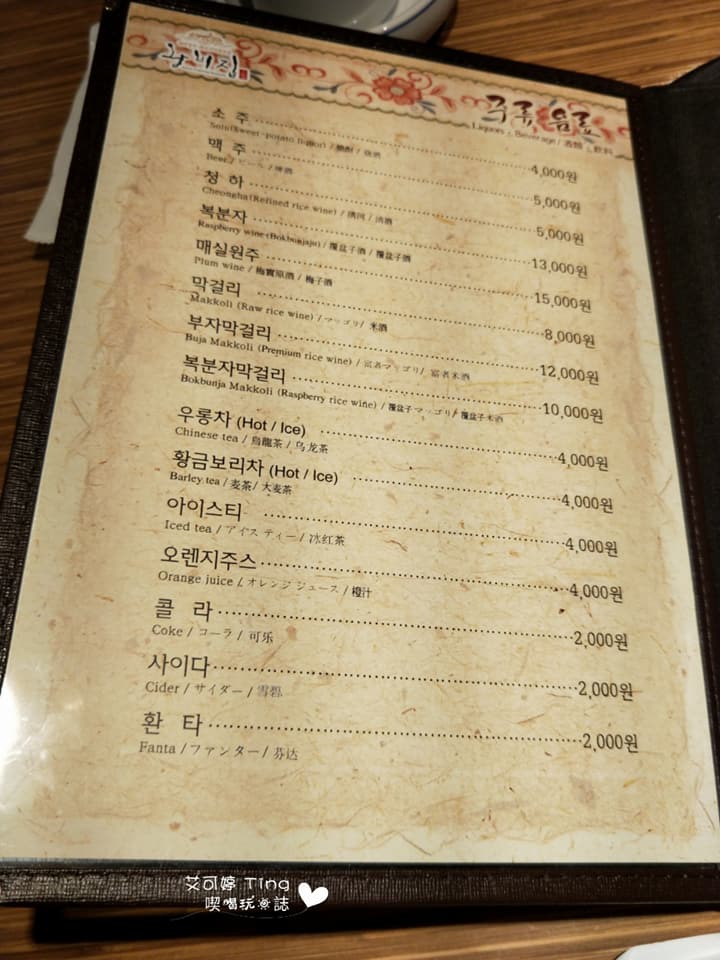 주류 음료
Liquors , Beverage / 酒類 , 飲料
소 주 4,000원
Soju(Sweet-potato liquor) / 燒酎 / 燒酒
맥 주 5,000원
Beer / ビール / 啤酒
청 하 5,000원
Cheongha(Refined rice wine) / 清河 / 清酒
복분자 13,000원
Raspberry wine(Bokbunjaju) / 覆盆子酒 / 覆盆子酒
매실원주 15,000원
Plum wine / 梅實原酒 / 梅子酒
막걸리 8,000원
Makkoli (Raw rice wine) / マッゴリ / 米酒
부자막걸리 12,000원
Buja Makkoli (Premium rice wine) / 富者マッゴリ / 富者米酒
복분자막걸리 10,000원
Bokbunja Makkoli (Raspberry rice wine) / 覆盆子マッゴリ / 覆盆子米酒
우롱차 (Hot / Ice) 4,000원
Chinese tea / 烏龍茶 / 乌龙茶
황금보리차 (Hot / Ice) 4,000원
Barley tea / 麦茶 / 大麦茶
아이스티 4,000원
Iced tea / アイス ティー / 冰红茶
오렌지주스 4,000원
Orange juice / オレンジ ジュース / 橙汁
콜 라 2,000원
Coke / コーラ / 可乐
사이다 2,000원
Cider / サイダー / 雪碧
환 타 2,000원
Fanta / ファンター / 芬达
艾可婷 Ting
喫喝玩樂誌